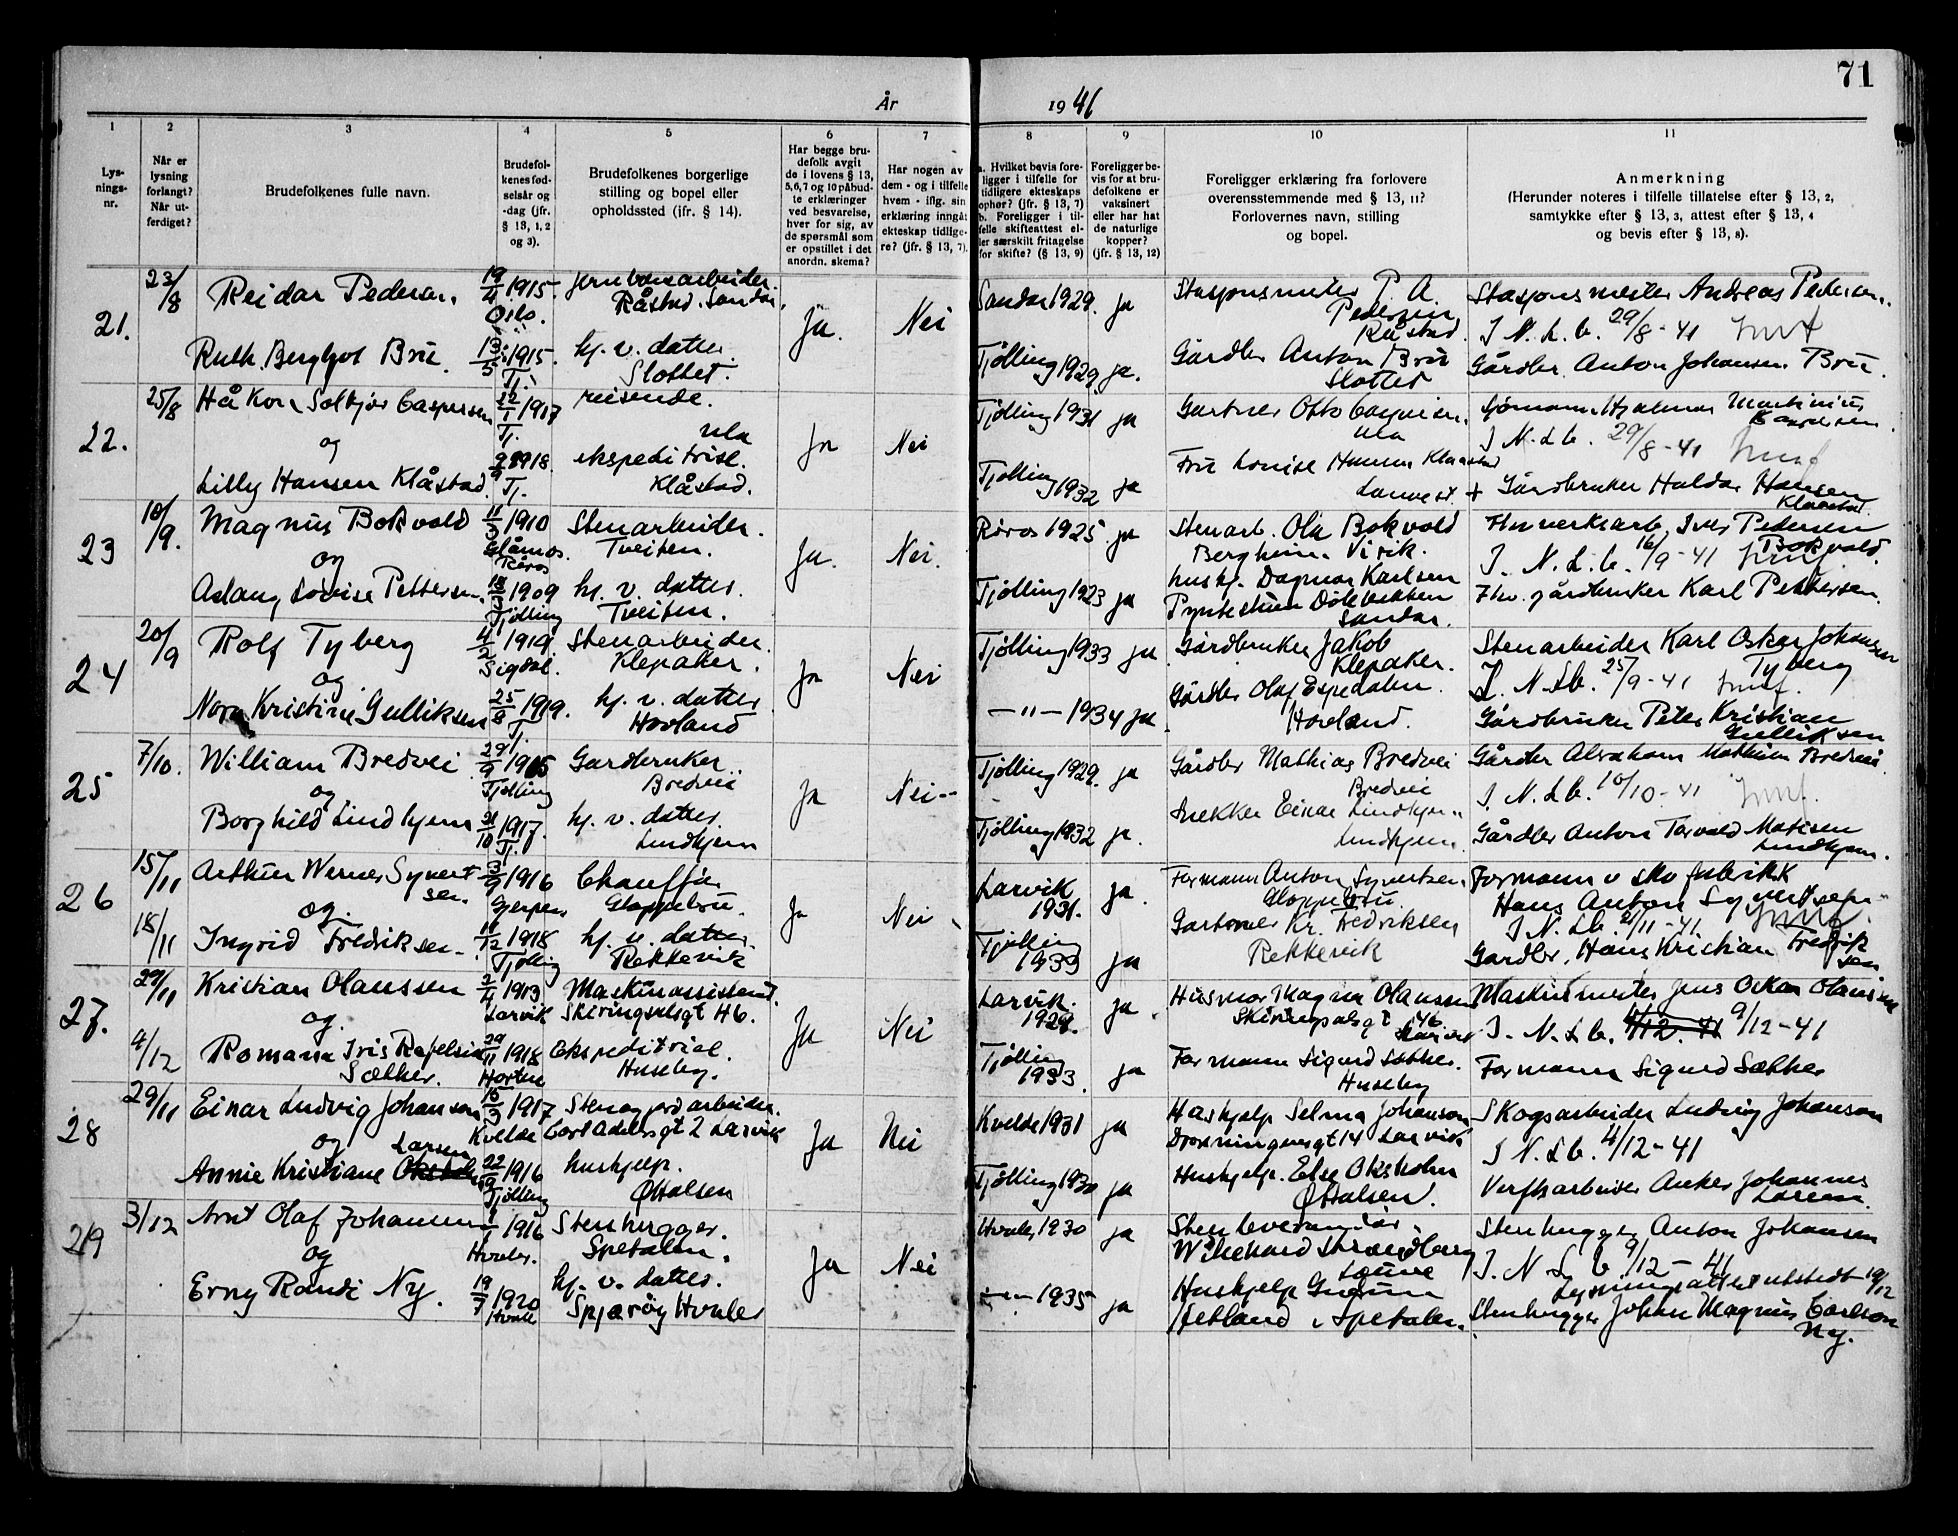 71
År 1941
1
Lys-
nings-
nr.
2
Når er
lysning
forlangt?
Når ut-
ferdiget?
3
Brudefolkenes fulle navn.
4
Brudefol-
kenes fød-
selsår og
-dag (jfr.
§ 13, 1, 2
og 3).
5
Brudefolkenes borgerlige
stilling og bopel eller
opholdssted (jfr. § 14).
6
Har begge bru-
defolk avgit
de i lovens § 13,
5, 6, 7 og 10 påbud-
te erklæringer
ved besvarelse,
hver for sig, av
de spørsmål som
er opstillet i det
anordn. skema?
7
Har nogen av
dem - og i tilfelle
hvem - iflg. sin
erklæring inngåt
ekteskap tidlige-
re? (jfr. § 13, 7).
8
a. Hvilket bevis fore-
ligger i tilfelle for
tidligere ekteskaps
ophør? (jfr. § 13, 7)
b. Foreligger i til-
felle skifteattest el-
ler særskilt fritagelse
for skifte? (§ 13, 9)
9
Foreligger be-
vis for at bru-
defolkene er
vaksinert
eller har hat
de naturlige
kopper?
(jfr. § 13, 12)
10
Foreligger erklæring fra forlovere
overensstemmende med § 13, 11?
Forlovernes navn, stilling
og bopel.
11
Anmerkning
(Herunder noteres i tilfelle tillatelse efter § 13, 2,
samtykke efter § 13, 3, attest efter § 13, 4
og bevis efter § 13, 8).
21.
23/8
Reidar Pedersen.
19/4 1915.
Oslo.
Jernbanearbeider.
Råstad. Sandar.
Ja.
Nei
Sandar 1929. ja
Stasjonsmester P. A.
Pedersen
Råstad.
Stasjonsmester Andreas Pedersen.
I N. L. b. 29/8 - 41
Ruth Bergljot Bru.
13/5 1915.
Tj.
hj. v. datter.
Slottet.
Tjølling 1929 ja.
Gårdbr Anton Bru
Slottet
Gårdbr. Anton Johansen Bru.
22.
25/8
Håkon Solbjør Caspersen
22/1 1917
Tj.
reisende.
Ula
Ja
Nei
Tjølling 1931 ja
Gartner Otto Caspersen.
Ula
Sjømann Hjalmar Martinius
Caspersen
I N. L b. 29/8 - 41
og
Lilly Hansen Klåstad.
1918.
Tj.
ekspeditrise.
Klåstad.
Tjølling 1932 ja
Fru Louise Hansen Klåstad
+ Gårdbruker Haldor Hansen
Klåstad.
23
10/9.
Magnus Bokvold
11/3 1910
Glåmos.
Røros
Stenarbeider.
Tveiten.
Ja.
Nei.
Røros 1925. ja
Stenarb. Ola Bokvold
Bergheim. Virik.
Fhv verksarb. Iver Pedersen
Bokvold.
I. N. L. b. 16/9 - 41
og
Aslaug Lovise Pettersen.
1909
Tjølling
hj. v. datter.
Tveiten.
Tjølling 1923 ja
hushj. Dagmar Karlsen
Sandar.
Fhv. gårdbruker Karl Pettersen.
24
20/9
Rolf Tyberg
1919.
Sigdal.
Stenarbeider
Klepaker.
Ja
Nei
Tjølling 1933 ja
Gårdbruker Jakob
Klepaker.
Stenarbeider Karl Oskar Johansen
Tyberg
I. N. Lb. 25/9 - 41
og
Nora Kristine Gulliksen
25/8 1919.
Tj.
hj. v. datter
Hovland
- " - 1934 ja
Gårdbr Olaf Espedalen.
Hovland.
Gårdbruker Peter Kristian
Gulliksen
25
7/10.
William Bredvei
29/9 1915
Tjølling
Gardbruker
Bredvei
Ja
Nei
Tjølling 1929. ja
Gårdbr Mathias Bredvei
Bredvei
Gårdbr Abraham Mathias Bredvei
I. N. L b. 10/10 - 41
og
Borghild Lindhjem
21/10 1917.
Tj.
hj. v. datter.
Lindhjem
Tjølling 1932 ja.
Snekker Einar Lindhjem
Lindhjem.
Gårdbr Anton Torvald Matisen
Lindhjem.
26
15/11
Arthur Werner Syvert-
sen.
3/9 1916
Gjerpen
Chauffør
Gloppebru.
Ja
Nei
Larvik
1931. ja.
Formann Anton Syvertsen.
Gloppebru.
Formann v skofabrikk
Hans Anton Syvertsen
I N. Lb. 21/11 - 41.
18/11
og.
Ingrid Fredriksen.
11/12 1918
Tjølling
hj. v. datter.
Rekkevik
Tjølling
1933 ja
Gartner Kr. Fredriksen
Rekkevik
Gardbr. Hans Kristian Fredrik
sen
27.
29/11
Kristian Olaussen
2/4 1913
Larvik
Maskinassistent.
Skiringsalsgt 46.
Ja
Nei
Larvik.
1929. ja.
Husmor Magna Olaussen
Skiringsalsgt 46.
Larvik
Maskinmester Jens Oskar Olaussen
I. N. L b. 4/12. 41 9/12 - 41
4/12
og.
Romana Iris Rafelsia
Sæther.
29/11 1918
Horten
Ekspeditrise.
Huseby.
Tjølling
1933. ja
Formann Sigurd Sæther.
Huseby
Formann Sigurd Sæther
28
29/11
Einar Ludvig Johanson
15/3 1917
Kvelde
Stenogjordarbeider.
Carl Adelersgt 2 Larvik
Ja
Nei
Kvelde 1931 ja
Hushjelp Selma Johanson
Dronningensgt 14 Larvik
Skogsarbeider Ludvig Johanson
I N. L b. 4/12 - 41
og Larsen
Annie Kristiane
22/9 1916
Tjølling
hushjelp.
Ø Halsen
Tjølling 1930 ja
Hushjelp. Else Oksholm
Ø Halsen.
Verftsarbeider Anker Johannes
Larsen.
29
3/12
Arnt Olaf Johansen
1916
Hvaler.
Stenhugger.
Spetalen.
Ja
Nei
Hvaler 1930 ja
Stenleverandør.
Strandberg
Stenhugger Anton Johansen
I. N L b 9/12 - 41
Lysningsattest utstedt 19/12
og
Erny Randi Ny.
19/7 1920
Hvaler
hj. v. datter.
Spjærøy Hvaler
- " - 1935 ja
Hushjelp Gudrun
Hetland, Spetalen.
Stenhugger Johan Magnus Carlson
Ny.